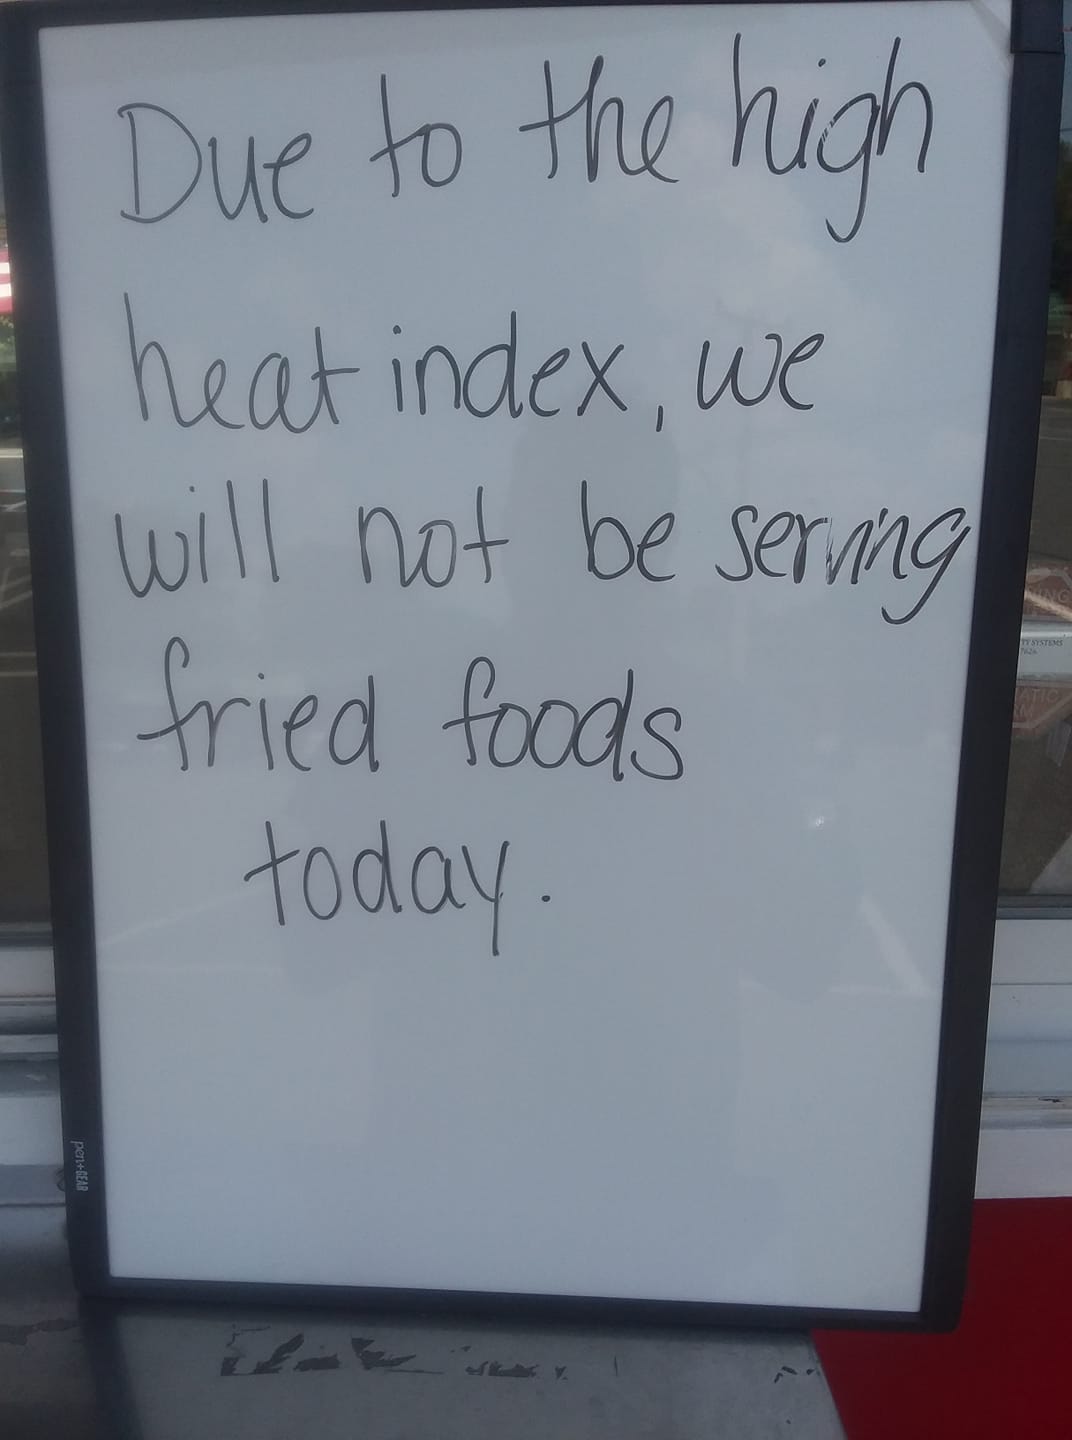 Due to the high
heat index, we
will not be serving
fried foods
today.
pen+GEAR
TY SYSTEMS